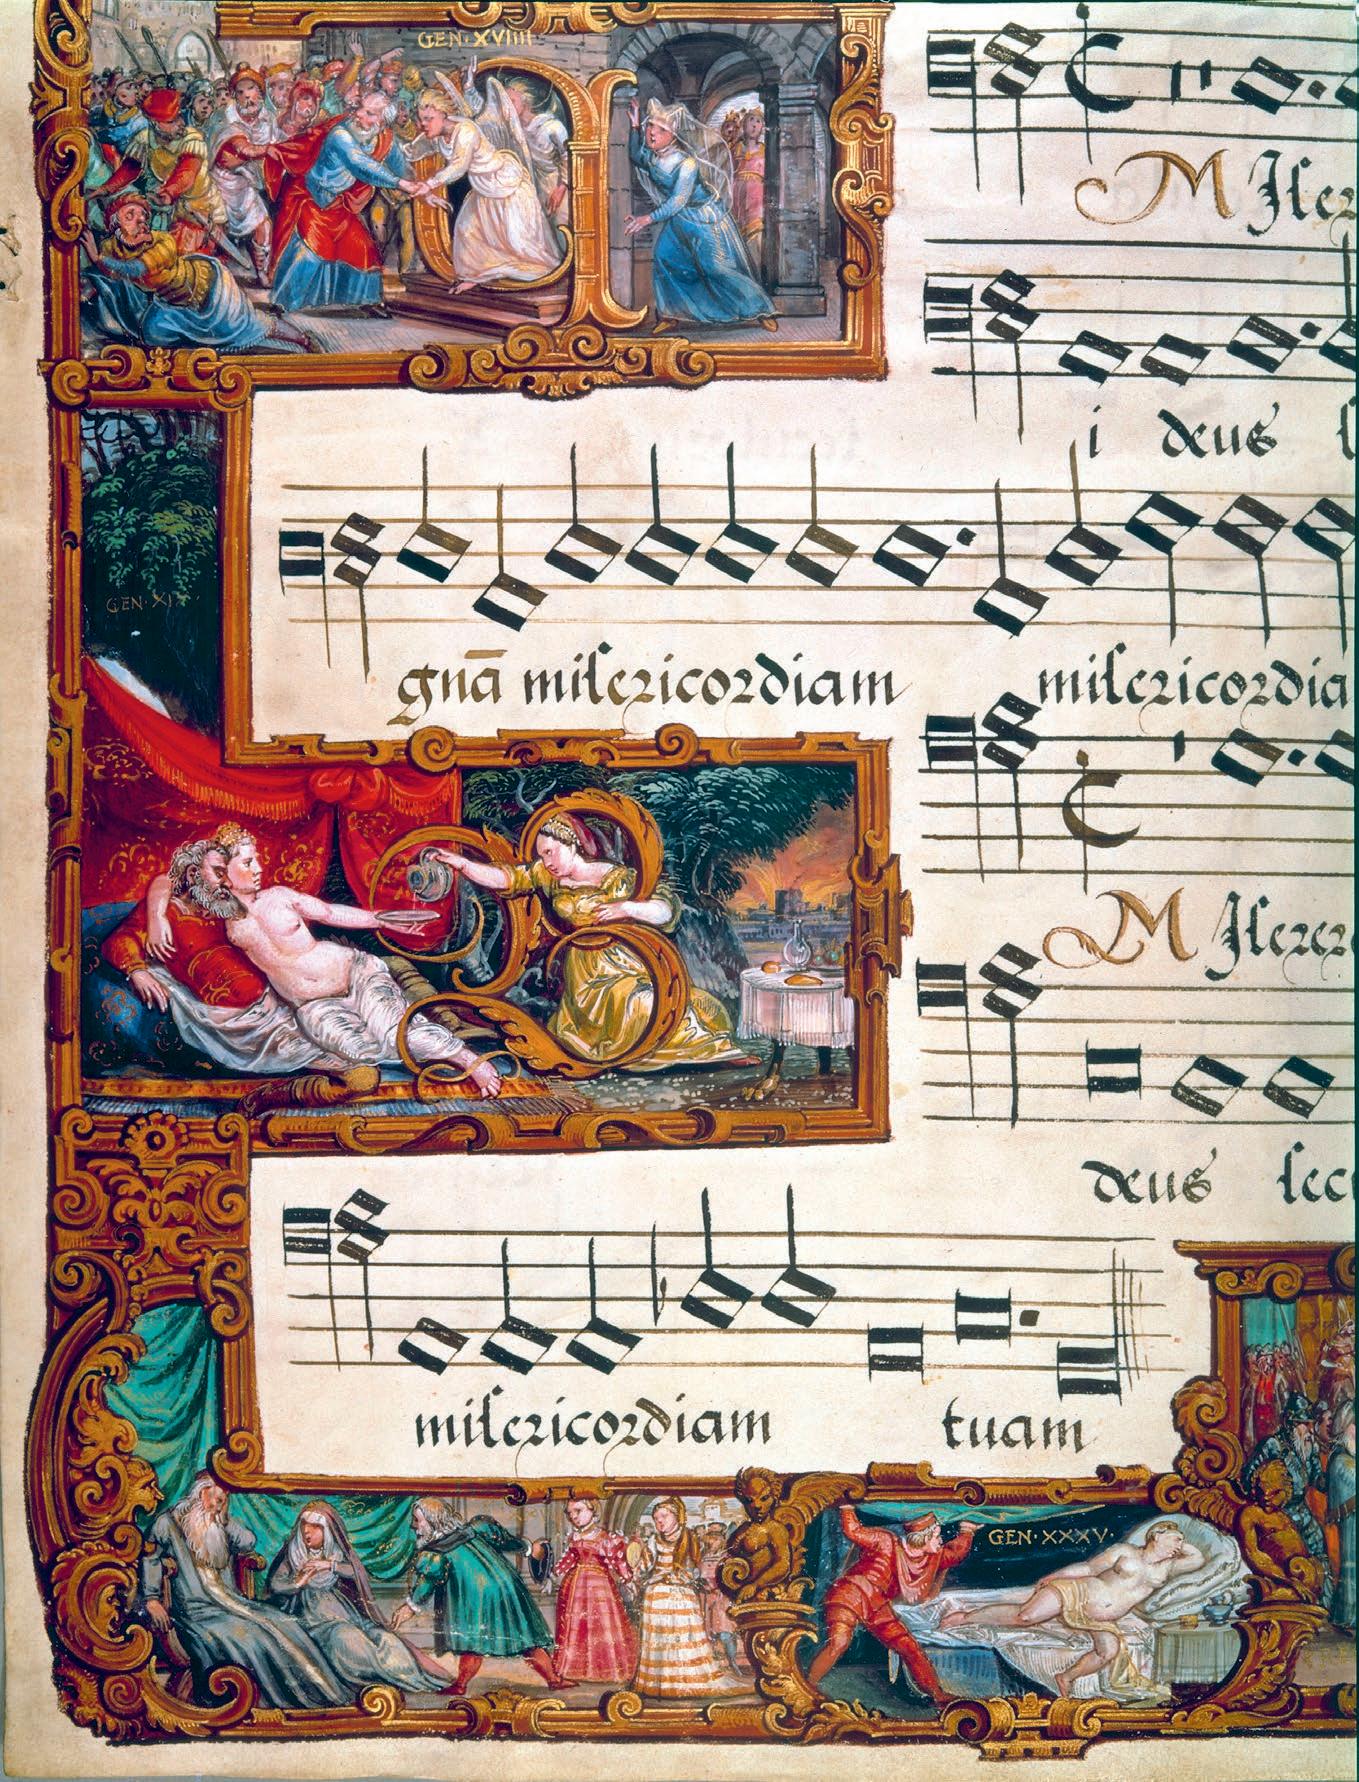 GEN·XVIIII
M Iserer
i deus
gnā misericordiam misericordia
GEN·XI
M Iserere
deus sec
misericordiam tuam
GEN·XXXV·